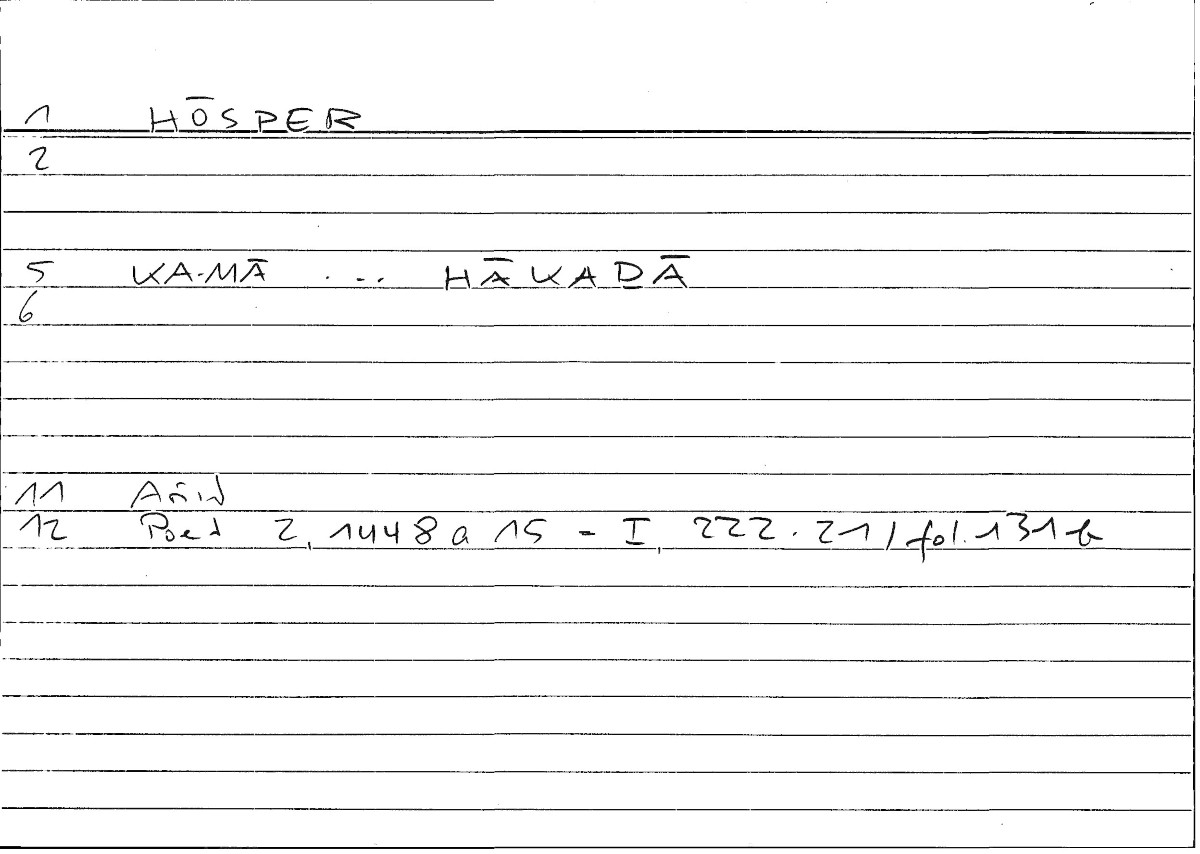 1 HŌSPER
2
5 KA-MĀ ... HĀKAḎĀ
6
11 Añid
12 Poet 2, 1448 a 15 = I, 222.21 / fol. 131 b